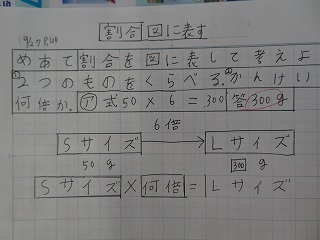 9/27 P.108
割合 図に表す
めあて 割合を図に表して考えよ
①2つのものをくらべる。②かんけい
何倍か。 ㋐ 式50×6=300 答300g
6倍
Sサイズ → Lサイズ
50g 300 g
Sサイズ × 何倍 = Lサイズ